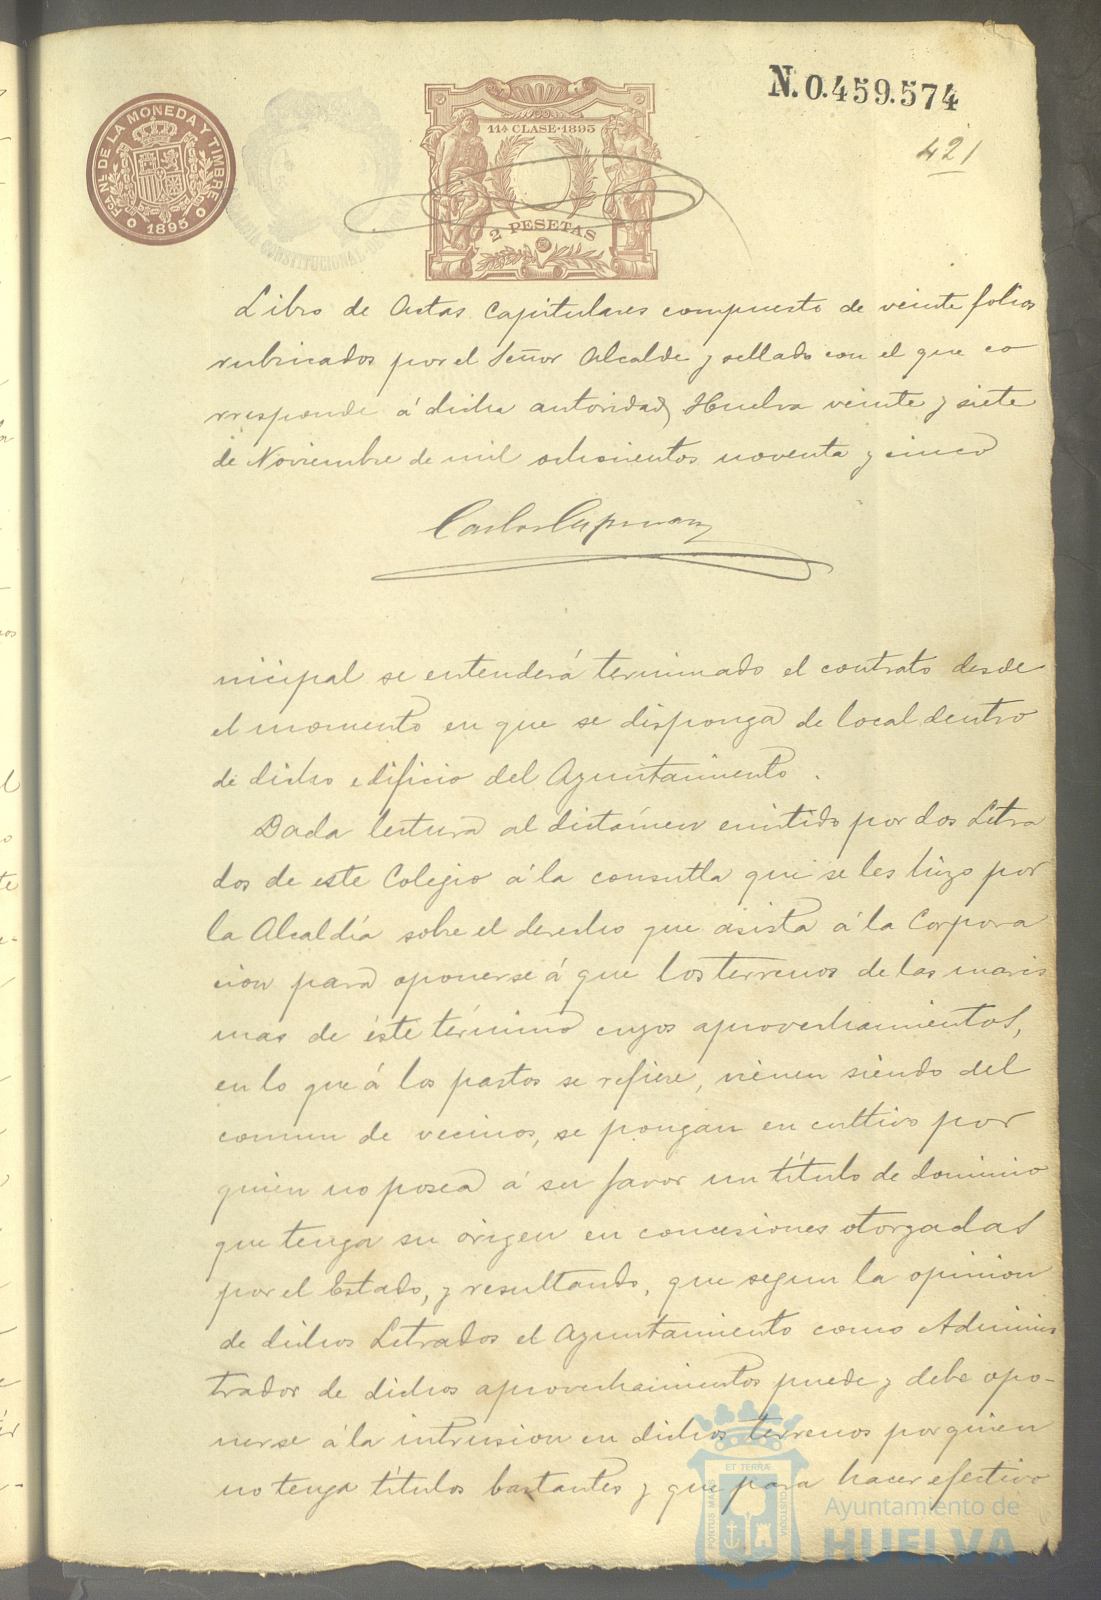 N. 0.459.574
421
FCA. NL. DE LA MONEDA Y TIMBRE
1895
11ª CLASE·1895
2 PESETAS
CONSTITUCIONAL
Libro de Actas Capitulares compuesto de veinte folios
rubricados por el Señor Alcalde y sellado con el que co
rresponde á dicha autoridad, Huelva veinte y siete
de Noviembre de mil ochocientos noventa y cinco
Carlos
nicipal se entenderá terminado el contrato desde
el momento en que se disponga de local dentro
de dicho edificio del Ayuntamiento.
Dada lectura al dictámen emitido por dos Letra
dos de este Colegio á la consulta que se les hizo por
la Alcaldía sobre el derecho que asista á la Corpora
cion para oponerse á que los terrenos de las maris
mas de éste término cuyos aprovechamientos,
en lo que á los pastos se refiere, vienen siendo del
comun de vecinos, se pongan en cultivo por
quien no posea á su favor un título de dominio
que tenga su origen en concesiones otorgadas
por el Estado, y resultando, que segun la opinion
de dichos Letrados el Ayuntamiento como Adminis
trador de dichos aprovechamientos puede y debe opo-
nerse á la intrusion en dichos terrenos por quien
no tenga títulos bastantes y que para hacer efectivo
ET TERRÆ
PORTUS MARIS
CUSTODIA
Ayuntamiento de
HUELVA